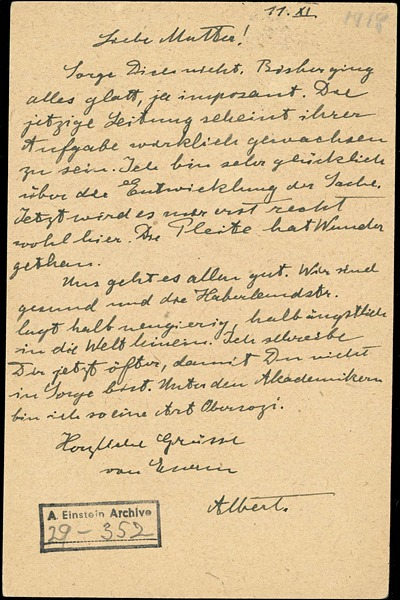 11. XI. 1918
Liebe Mutter!
Sorge Dich nicht. Bisher ging
alles glatt, ja imposant. Die
jetzige Leitung scheint ihrer
Aufgabe wirklich gewachsen
zu sein. Ich bin sehr glücklich
über die Entwicklung der Sache.
Jetzt wird es mir erst recht
wohl hier. Die Pleite hat Wunder
gethan.
Uns geht es allen gut. Wir sind
gesund und die Haberlandstr.
lugt halb neugierig, halb ängstlich
in die Welt hinein. Ich schreibe
Dir jetzt öfter, damit Du nicht
in Sorge bist. Unter den Akademikern
bin ich so eine Art Obersozi.
Herzliche Grüsse
von Euerm
Albert.
A. Einstein Archive
29-352